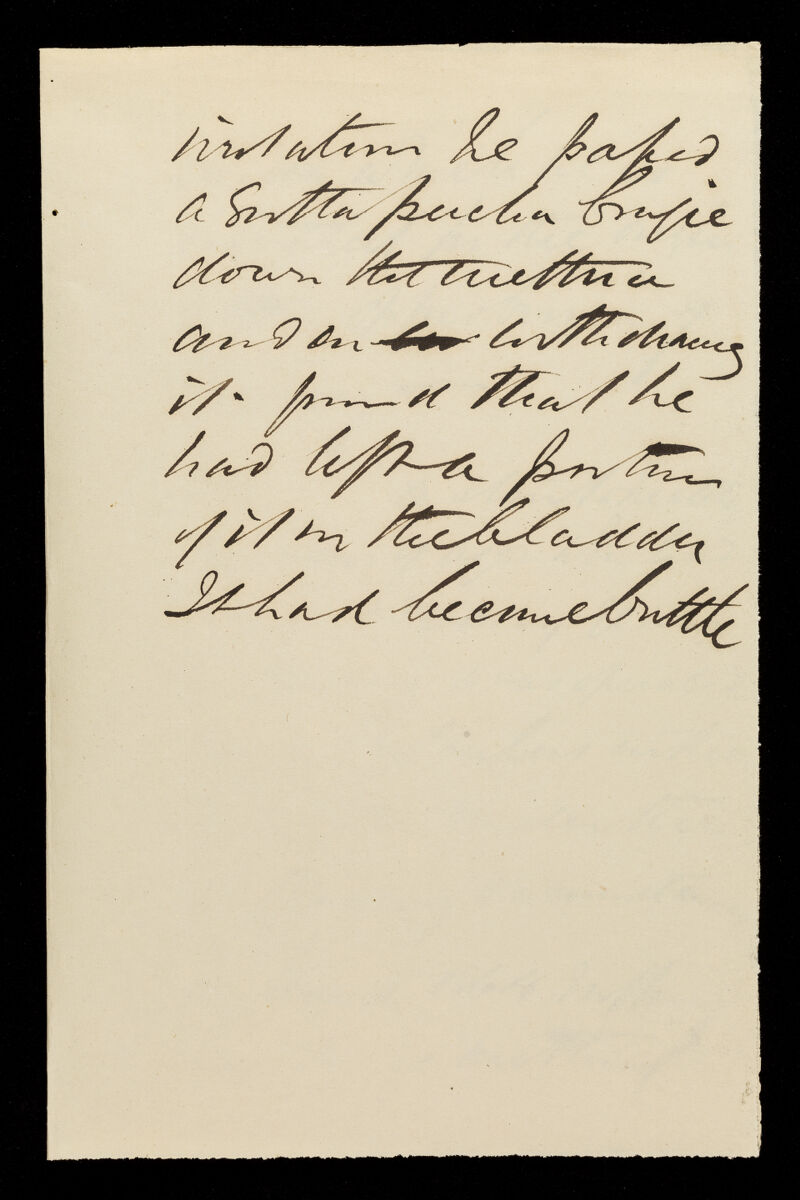 irritation he passed
a Gutta percha bougie
down the urethra
and on withdrawing
it found that he
had left a portion
of it in the bladder
It had become brittle